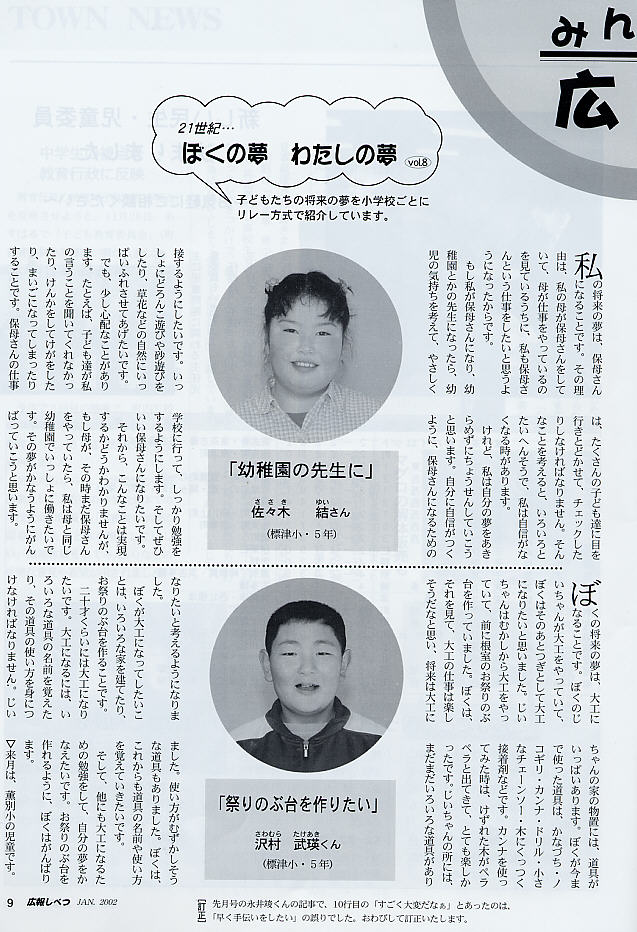 みん
広
21世紀…
ぼくの夢 わたしの夢 vol.8
子どもたちの将来の夢を小学校ごとに
リレー方式で紹介しています。
私の将来の夢は、保母さん
になることです。その理
由は、私の母が保母さんをして
いて、母が仕事をやっているの
を見ているうちに、私も保母さ
んという仕事をしたいと思うよ
うになったからです。
もし私が保母さんになり、幼
稚園とかの先生になったら、幼
児の気持ちを考えて、やさしく
接するようにしたいです。いっ
しょにどろんこ遊びや砂遊びを
したり、草花などの自然にいっ
ぱいふれさせてあげたいです。
でも、少し心配なことがあり
ます。たとえば、子ども達が私
の言うことを聞いてくれなかっ
たり、けんかをしてけがをした
り、まいごになってしまったり
することです。保母さんの仕事
は、たくさんの子ども達に目を
行きとどかせて、チェックした
りしなければなりません。そん
なことを考えると、いろいろと
たいへんそうで、私は自信がな
くなる時があります。
けれど、私は自分の夢をあき
らめずにちょうせんしていこう
と思います。自分に自信がつく
ように、保母さんになるための
学校に行って、しっかり勉強を
するようにします。そしてぜひ
いい保母さんになりたいです。
それから、こんなことは実現
するかどうかわかりませんが、
もし母が、その時まだ保母さん
をやっていたら、私は母と同じ
幼稚園でいっしょに働きたいで
す。その夢がかなうようにがん
ばっていこうと思います。
「幼稚園の先生に」
ささき ゆい
佐々木 結さん
(標津小・5年)
ぼくの将来の夢は、大工に
なることです。ぼくのじ
いちゃんが大工をやっていて、
ぼくはそのあとつぎとして大工
になりたいと思いました。じい
ちゃんはむかしから大工をやっ
ていて、前に根室のお祭りのぶ
台を作っていました。ぼくは、
それを見て、大工の仕事は楽し
そうだなと思い、将来は大工に
なりたいと考えるようになりま
した。
ぼくが大工になってしたいこ
とは、いろいろな家を建てたり、
お祭りのぶ台を作ることです。
二十才くらいには大工になり
たいです。大工になるには、い
ろいろな道具の名前を覚えた
り、その道具の使い方を身につ
けなければなりません。じい
ちゃんの家の物置には、道具が
いっぱいあります。ぼくが今ま
で使った道具は、かなづち・ノ
コギリ・カンナ・ドリル・小さ
なチェーンソー・木にくっつく
接着剤などです。カンナを使っ
てみた時は、けずれた木がペラ
ペラと出てきて、とても楽しか
ったです。じいちゃんの所には、
まだまだいろいろな道具があり
ました。使い方がむずかしそう
な道具もありました。ぼくは、
これからも道具の名前や使い方
を覚えていきたいです。
そして、他にも大工になるた
めの勉強をして、自分の夢をか
なえたいです。お祭りのぶ台を
作れるように、ぼくはがんばり
ます。
▽来月は、薫別小の児童です。
「祭りのぶ台を作りたい」
さわむら たけあき
沢村 武瑛くん
(標津小・5年)
【訂正】 先月号の永井竣くんの記事で、10行目の「すごく大変だなぁ」とあったのは、
「早く手伝いをしたい」の誤りでした。おわびして訂正いたします。
9 広報しべつ JAN. 2002